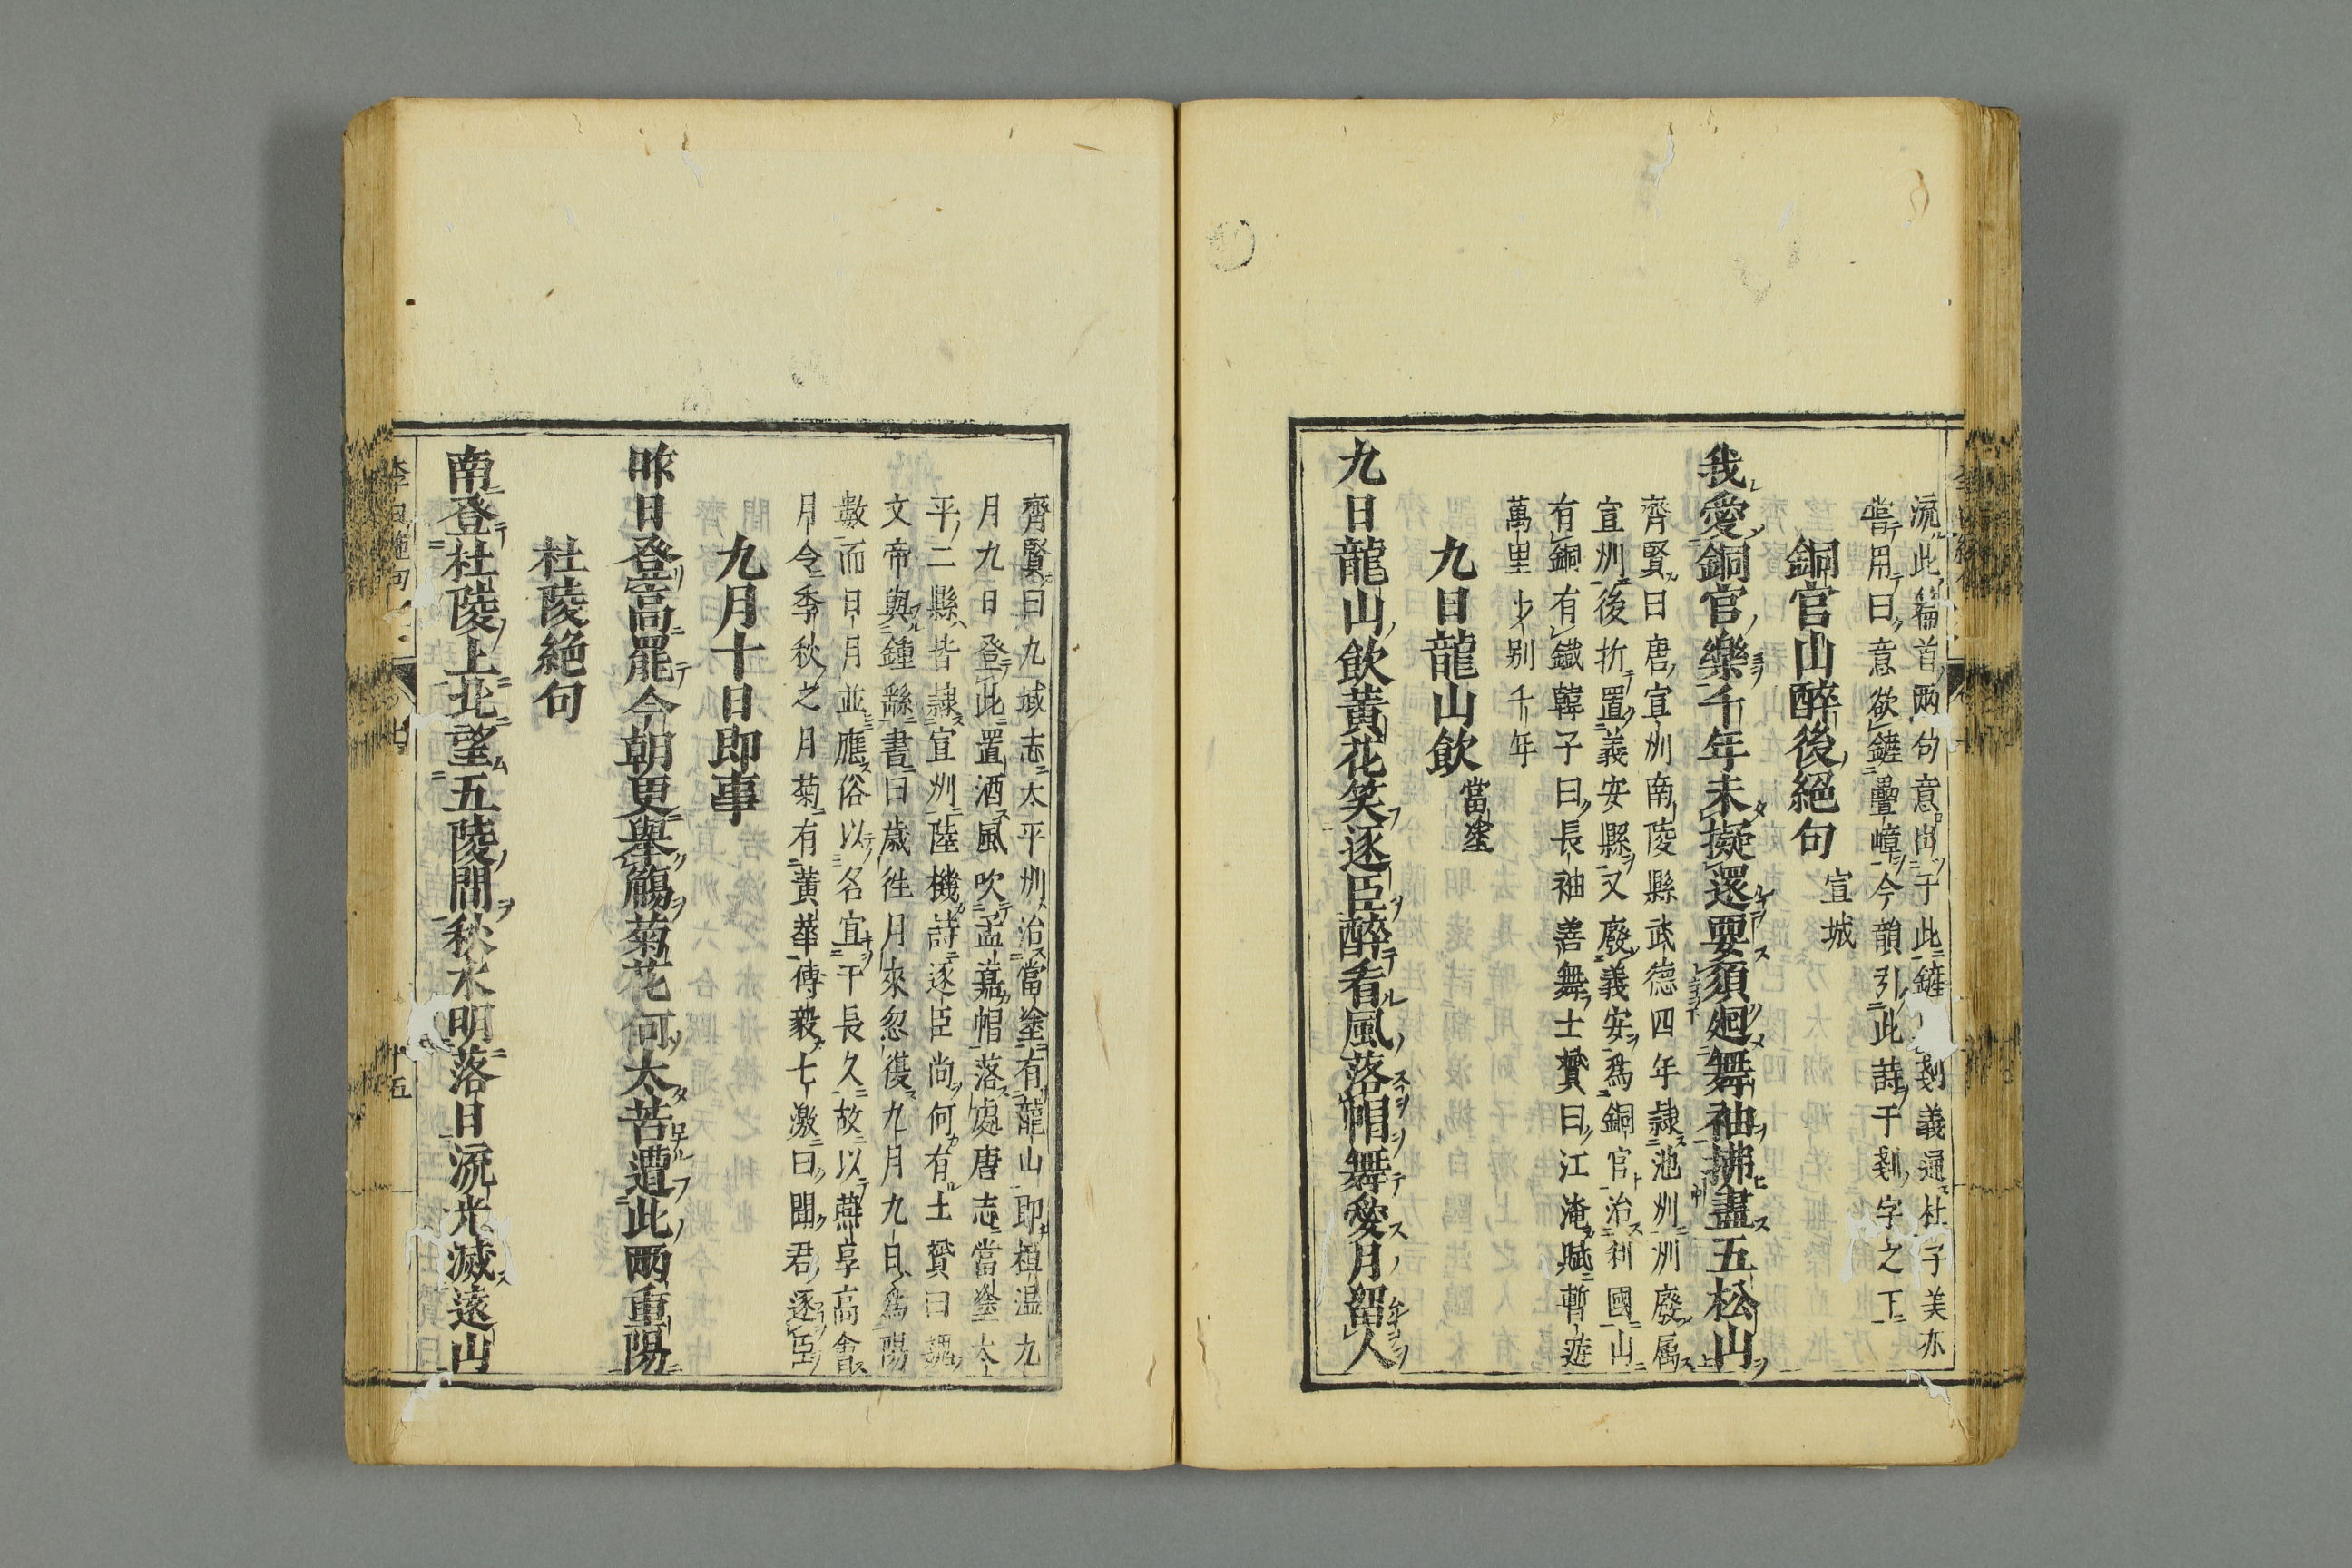 流此篇首两句意出于此鏟剗義通杜子美亦
嘗用曰意欲鏟疊嶂今韻引此詩于剗字之下
銅官山醉後絕句 宣城
我愛銅官樂千年未擬還要須廻舞袖拂盡五松山
齊賢曰唐宣州南陵縣武德四年隸池州州廢屬
宣州後析置義安縣又廢義安爲銅官治利國山
有銅有鐵韓子曰長袖善舞士贇曰江淹賦暫遊
萬里少别千年
九日龍山飲 當塗
九日龍山飲黃花笑逐臣醉看風落帽舞愛月留人
齊賢曰九域志太平州治當塗有龍山即桓温九
月九日登此置酒風吹孟嘉帽落處唐志當塗太
平二縣皆隸宣州陸機詩逐臣尚何有士贇曰魏
文帝與鍾繇書曰歲徃月來忽復九月九日爲陽
數而日月並應俗以名宜于長久故以燕享高會
月令季秋之月菊有黃華傅毅七激曰聞君逐臣
九月十日即事
昨日登高罷今朝更舉觴菊花何太苦遭此两重陽
杜陵絕句
南登杜陵上北望五陵間秋水明落日流光滅遠山
十五